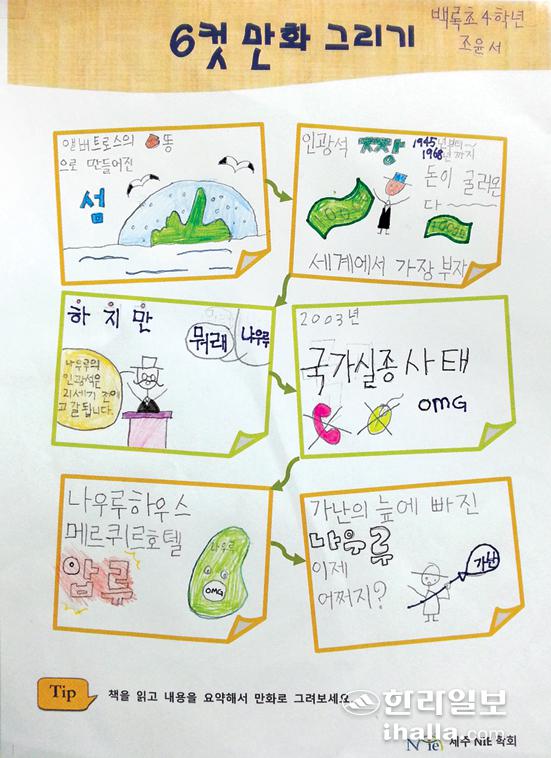 6컷 만화 그리기
백록초 4학년
조윤서
앨버트로스의 똥
으로 만들어진
섬
인광석
1945년부터~
1968년까지
돈이 굴러온
다~
세계에서 가장 부자
하지만
뭐래
나우루
나우루의
인광석은
21세기 전에
고갈됩니다.
2003년
국가실종사태
OMG
나우루하우스
메르퀴르호텔
압류
나우루
OMG
가난의 늪에 빠진
나우루
이제
어쩌지?
가난
Tip
책을 읽고 내용을 요약해서 만화로 그려보세요
한라일보
ihalla.com
NIE
제주 NIE 학회